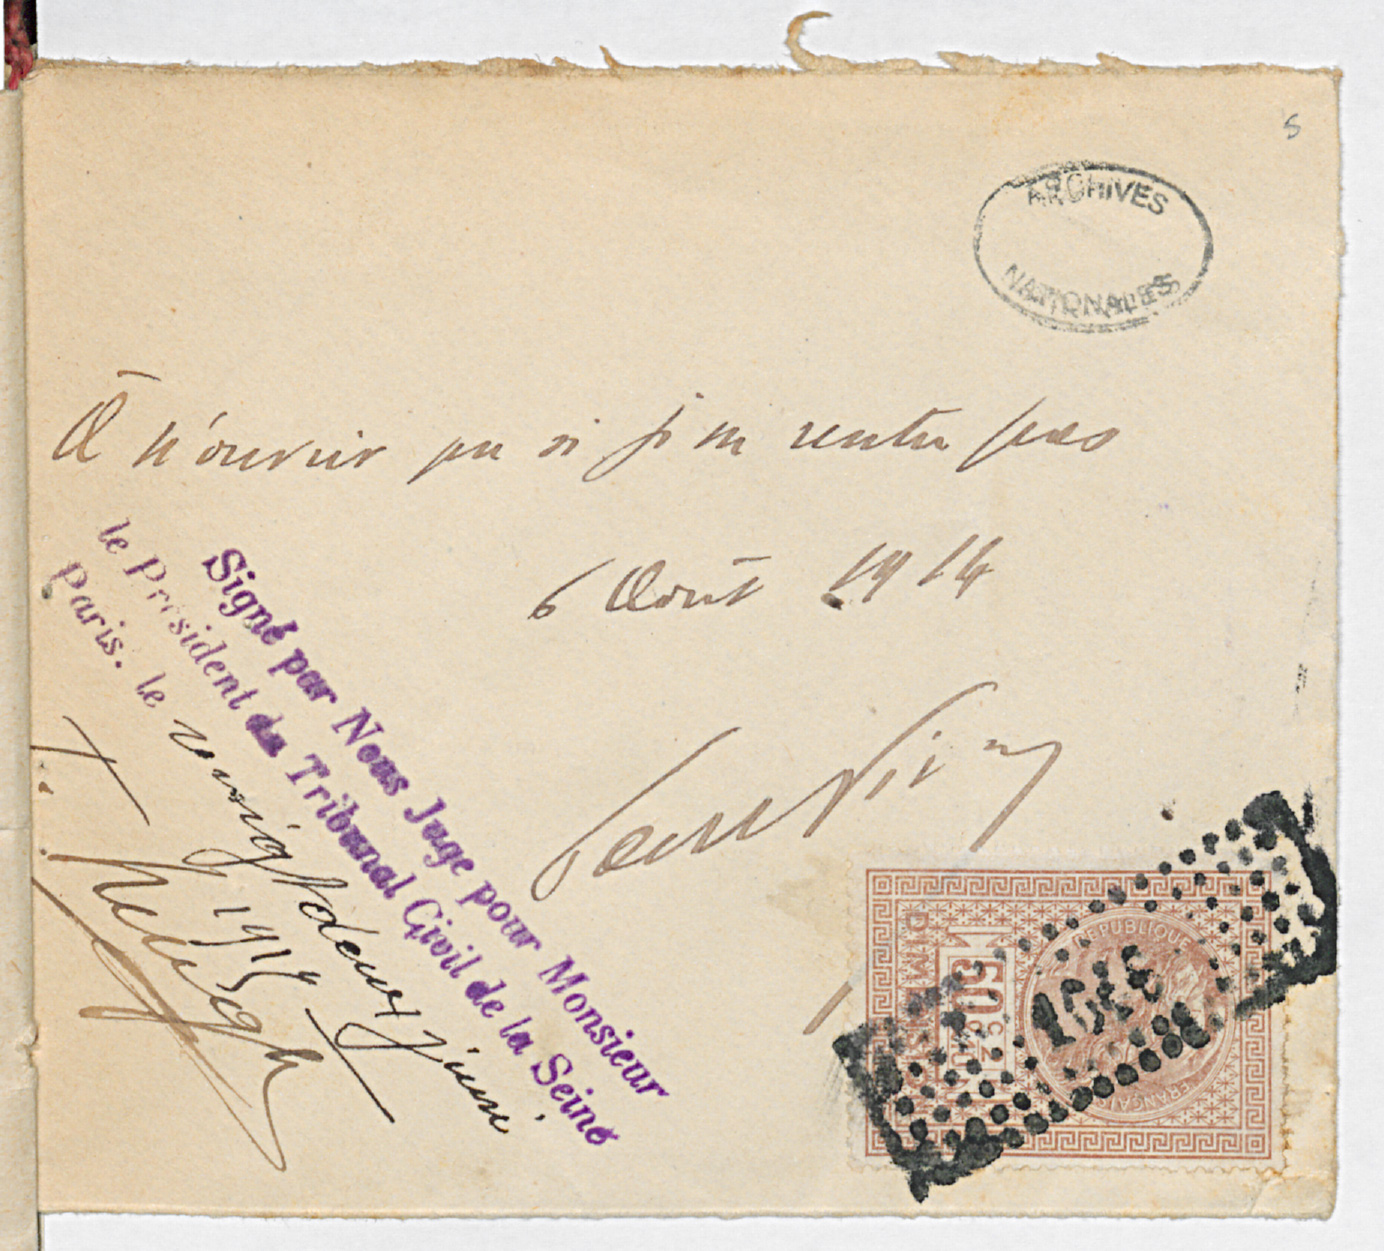 5
ARCHIVES
NATIONALES
À n'ouvrir que si je ne rentre pas
6 Août 1914
Signé par Nous Juge pour Monsieur
le Président du Tribunal Civil de la Seine
Paris. le vingt deux juin
1915
RÉPUBLIQUE
FRANÇAISE
DIMENSION
60 C